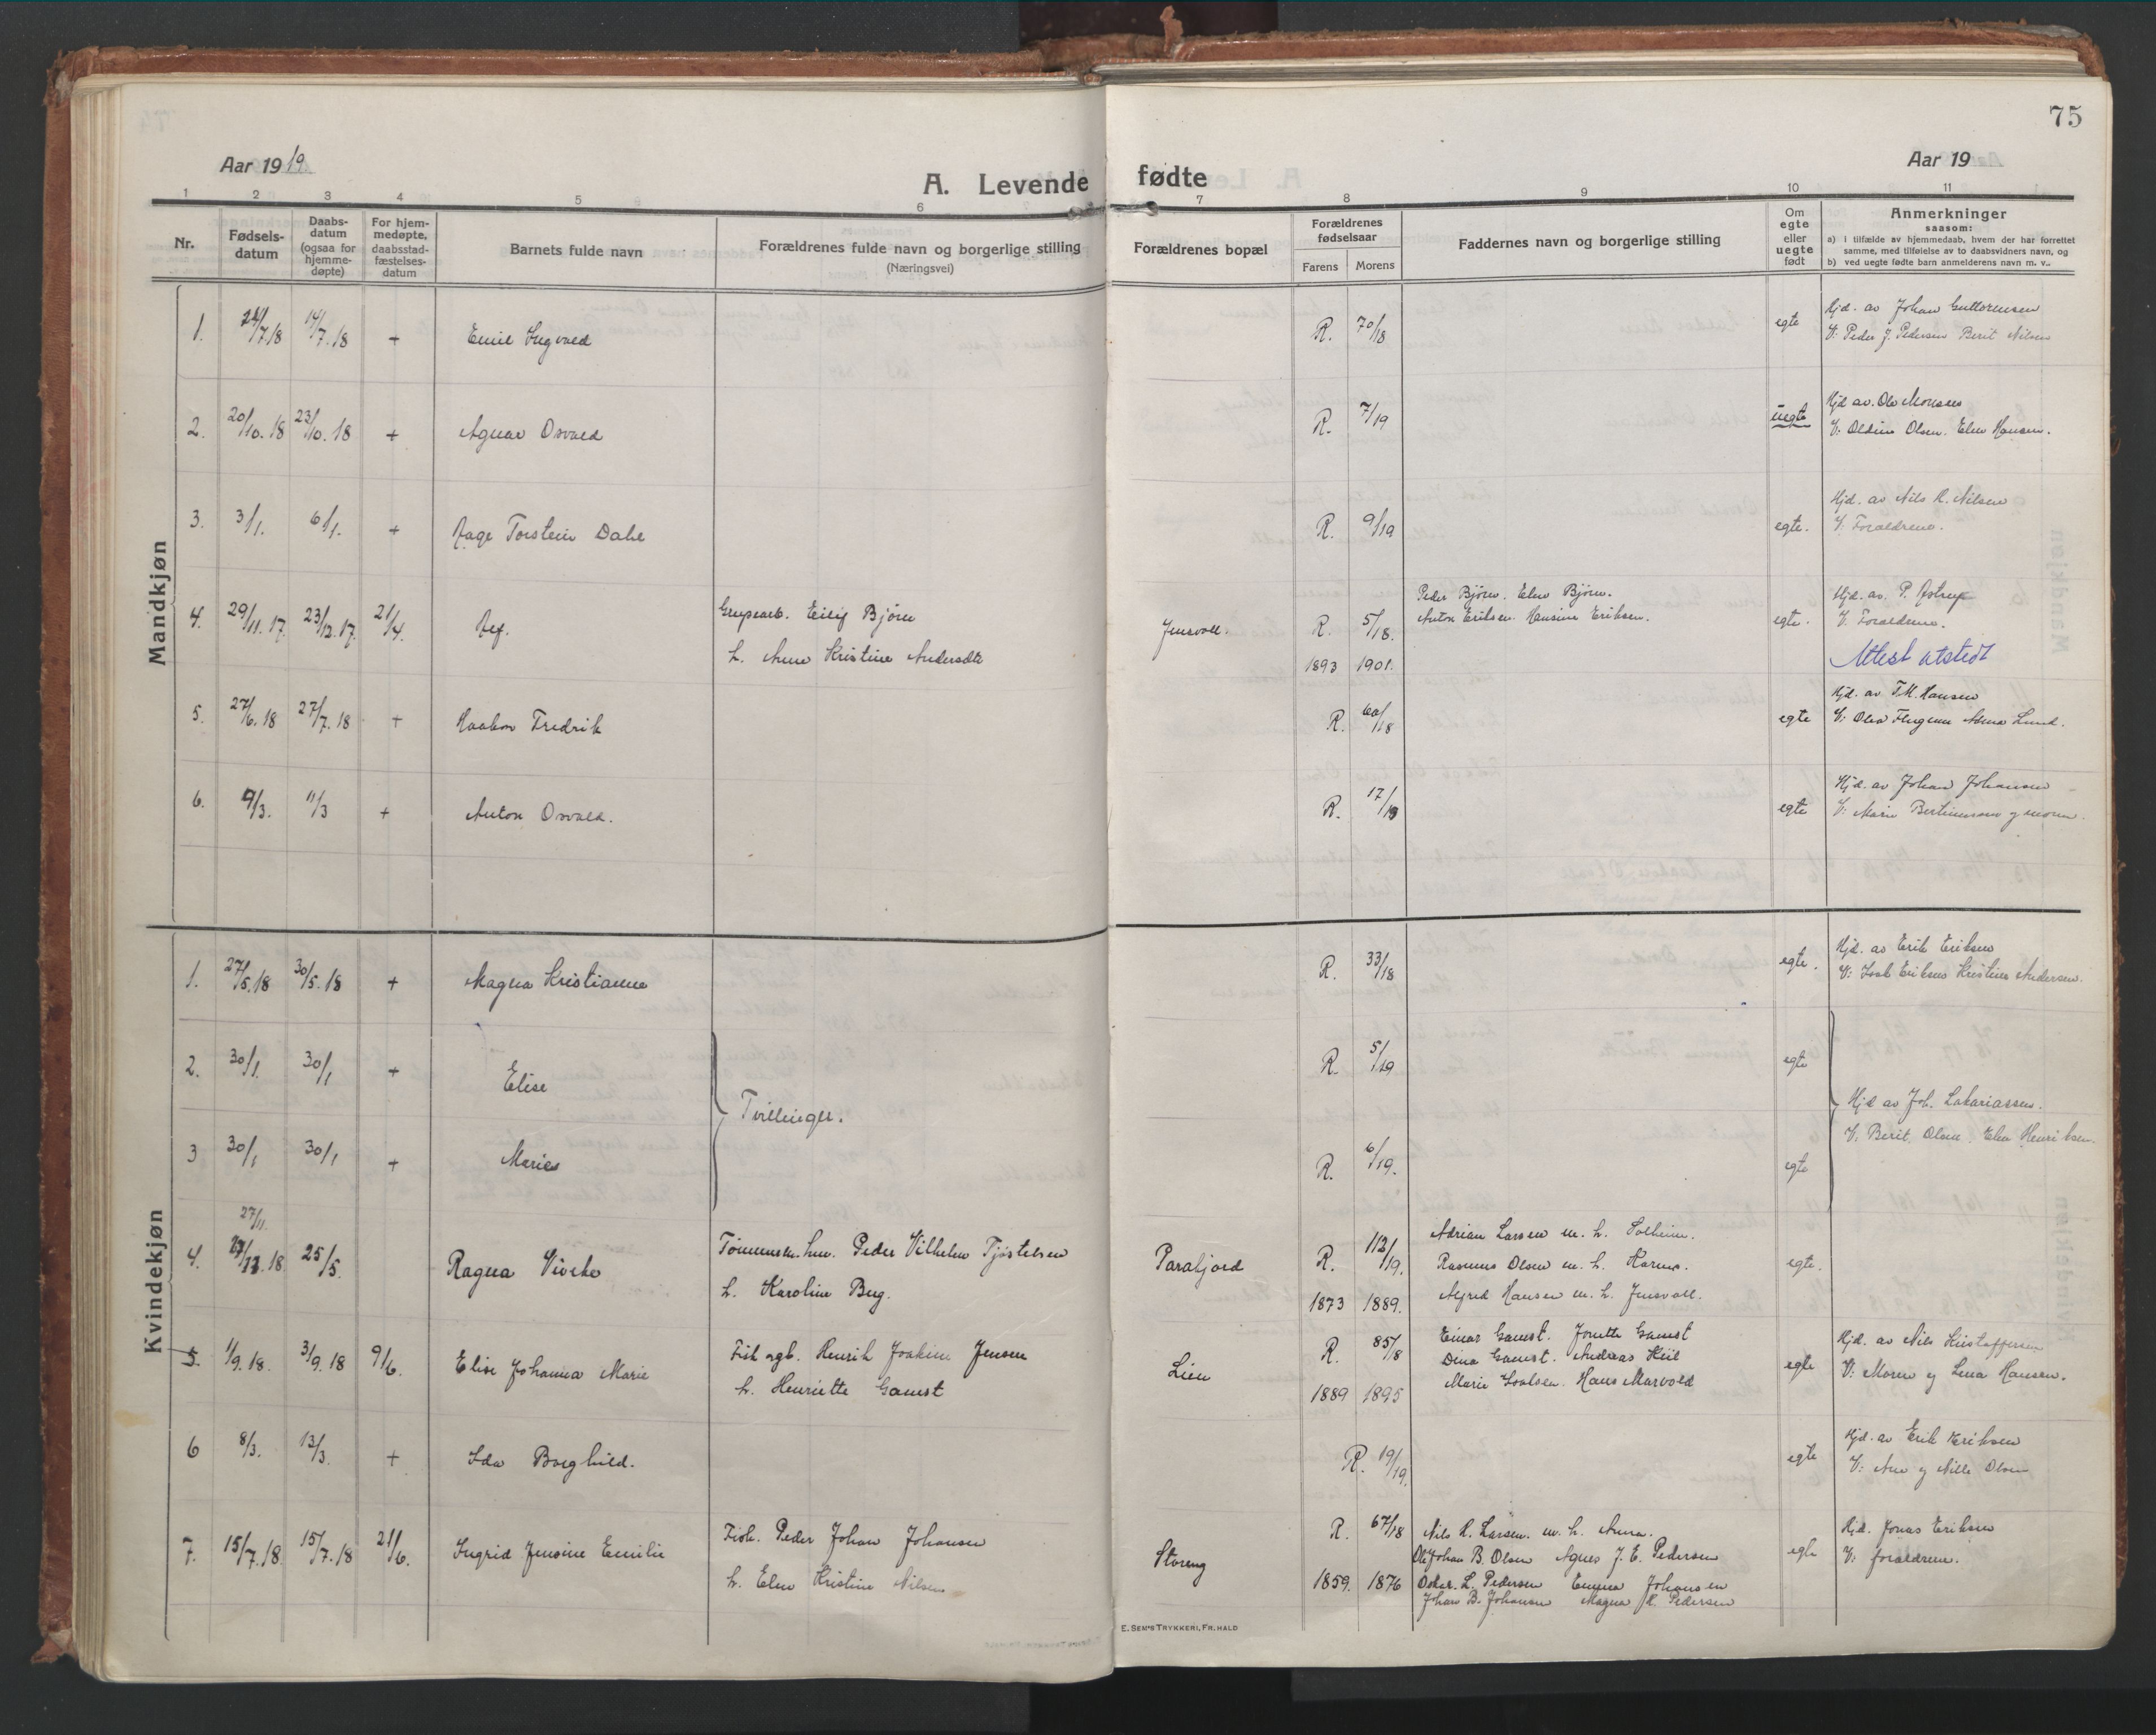 75
Aar 1919.
Aar 19
A. Levende fødte
1 2 3 4 5 6 7 8 9 10 11
Nr.
Fødsels-
datum
Daabs-
datum
(ogsaa for
hjemme-
døpte)
For hjem-
medøpte,
daabsstad-
fæstelses-
datum
Barnets fulde navn
Forældrenes fulde navn og borgerlige stilling
(Næringsvei)
Forældrenes bopæl
Forældrenes
fødselsaar
Farens Morens
Faddernes navn og borgerlige stilling
Om
egte
eller
uegte
født
Anmerkninger
saasom:
a) I tilfælde av hjemmedaab, hvem der har forrettet
samme, med tilføielse av to daabsvidners navn, og
b) ved uegte fødte barn anmelderens navn m. v..
Mandkjøn
1. 7.18 14/7.18 + Emil Ingvald R. 70/18 egte Hjd. av Johan Guttormsen
V: Peder J. Pedersen Berit Nilsen
2. 20/10.18 23/10.18 + Agnar Osvald R. 7/19 uegte Hjd av. Ole Monsen
V: Oldine Olsen. Elen Hansen.
3. 3/1. 6/1. + Aage Torstein Dahl R. 9/19 egte. Hjd. av Nils R. Nilsen
V: Forældrene.
4. 29/11.17. 23/12.17. 21/4. Leif. Grupearb. Eilif Bjørn Jensvoll. R. 5/18. Peder Bjørn. Elen Bjørn. egte. Hjd. av. P. Astrup
h. Anne Kristine Andersdtr 1893 1901. Anton Eriksen. Hansine Eriksen. V. Forældrene.
Attest utstedt
5. 27/6.18 27/7.18 + Haakon Fredrik R. 60/18 egte Hjd. av T.M. Hansen
V: Olea Anna Lund.
6. 9/3. 11/3 + Anton Osvald. R. 17/19 egte Hjd. av Johan Johansen
V: Marie Bertinussen og moren.
Kvindekjøn
1. 27/5.18 30/5.18 + Magna Kristianne R. 33/18 egte. Hjd. av Erik Eriksen
V: Isak Eriksen Kristine Andersen.
2. 30/1. 30/1 + Elise R. 5/19 egte
Tvillinger. Hjd av Joh. Zakariassen.
V. Berit Olsen. Elen Henriksen.
3 30/1 30/1 + Marie R. 6/19. egte
27/11.
4. 18 25/5. Ragna Viveke Tømmerm. hm. Peder Vilhelm Tjøstelsen Parafjord R. 112/19. Adrian Larsen m. h. Solheim. egte.
h. Karoline Berg. 1873 1889. Rasmus Olsen m. h. Karine.
Alfred Hansen m. h. Jensvoll.
5. 1/9.18. 3/9.18 9/6. Elise Johanna Marie Fisk. og gb. Henrik Joakim Jensen Lien R. 85/8 Einar Gamst. Jonette Gamst egte Hjd. av Nils Kristoffersen
h. Henriette Gamst 1889 1895 Dina Gamst. Andreas Kiil V: Moren og Lena Hansen.
Marie Isaksen. Hans Marvold
6 8/3. 13/3. + Ida Borghild. R. 19/19. egte Hjd. av Erik Eriksen
V: Ane og Nille Olsen
7. 15/7.18. 15/7.18 21/6. Ingrid Jensine Emilie Fisk. Peder Johan Johansen Storeng R. 67/18 Nils R. Larsen. m. h. Anna. egte Hjd. Jonas Eriksen
h. Elen Kristine Nilsen 1859. 1876 Ole Johan B. Olsen Agnes J. E. Pedersen V: forældrene.
Oskar L. Pedersen Emma Johansen
Johan B. Johansen Magna K. Pedersen
E. SEM'S TRYKKERI, FR.HALD